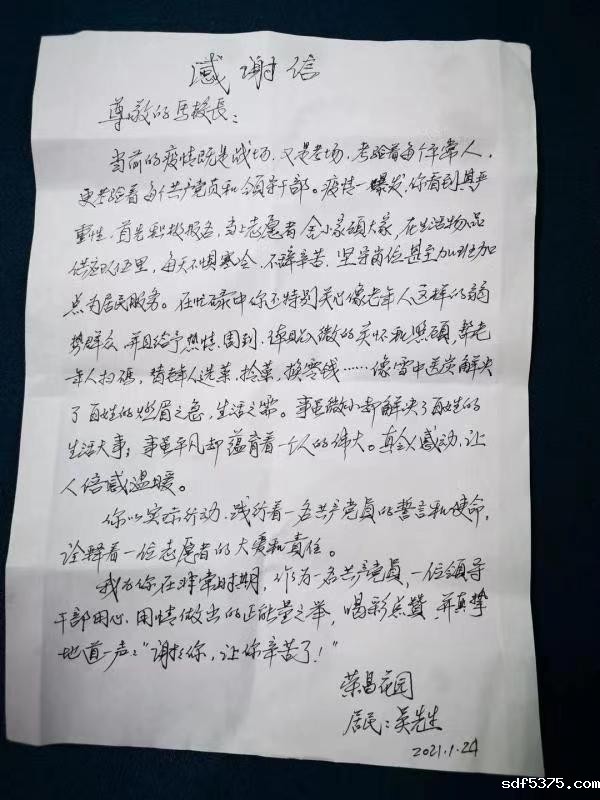 感谢信
尊敬的马校長:
当前的疫情既是战场,又是考场,考验着每个平常人,
更考验着每个共产党员和领导干部。疫情一爆发,你看到其严
重性,首先积极报名,当上志愿者舍小家顾大家,在生活物品
供应队伍里,每天不惧寒冷,不辞辛苦,坚守岗位甚至加班加
点为居民服务。在忙碌中你还特别关心像老年人这样的弱
势群众,并且给予热情、周到、详细入微的关怀和照顾,帮老
年人扫码,替老年人选菜,拎菜,换零钱……像雪中送炭解决
了百姓的燃眉之急,生活之需。事虽微小却解决了百姓的
生活大事;事虽平凡却蕴育着一个人的伟大。真令人感动,让
人倍感温暖。
你以实际行动,践行着一名共产党員的誓言和使命,
诠释着一位志愿者的大爱和责任。
我为你在非常时期,作为一名共产党員,一位领导
干部用心、用情做出的正能量之举,喝彩点赞,并真挚
地道一声:"谢谢你,让你辛苦了!"
荣昌花园
居民:吴先生
2021.1.24
sdf5375.com